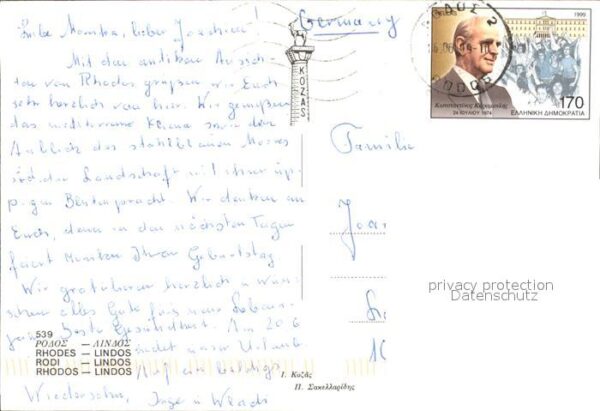 Liebe Monika, lieber Joachim!
Mit den antiken
von Rhodos grüßen wir Euch
sehr herzlich von hier. Wir genießen
das mediterrane Klima sowie den
Anblick des stahlblauen Meeres
und der Landschaft mit ihrer üp-
pigen Blütenpracht. Wir denken an
Euch, denn in den nächsten Tagen
feiert Monika Ihren Geburtstag.
Wir gratulieren herzlich u. wün-
schen alles Gute fürs neue Lebens-
jahr, beste Gesundheit. Am 20.6
endet unser Urlaub
Auf ein baldiges
Wiedersehn, Inge u.
Germany
KOZAS
1999
Κωνσταντίνος Καραμανλής
24 ΙΟΥΛΙΟΥ 1974
170
ΕΛΛΗΝΙΚΗ ΔΗΜΟΚΡΑΤΙΑ
Familie
Joa
privacy protection
Datenschutz
539
ΡΟΔΟΣ — ΛΙΝΔΟΣ
RHODES — LINDOS
RODI — LINDOS
RHODOS — LINDOS
Ι. Κοζάς
Π. Σακελλαρίδης